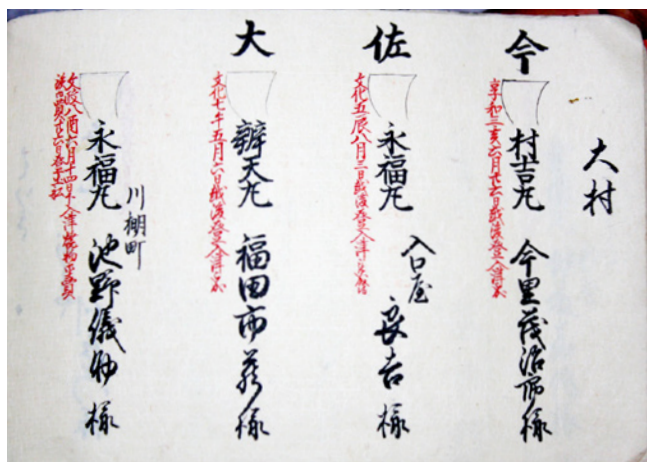 大村
今
享和三亥六月廿六日越後登リ入津
村吉丸 今里茂治郎様
佐
文化五辰八月三日越後登リ入津
永福丸 入口屋 良吉様
大
文化七午五月六日越後登リ入津
辨天丸 福田市蔵様
文政八酉六月十四日入津
永福丸 川棚町 池野儀助様